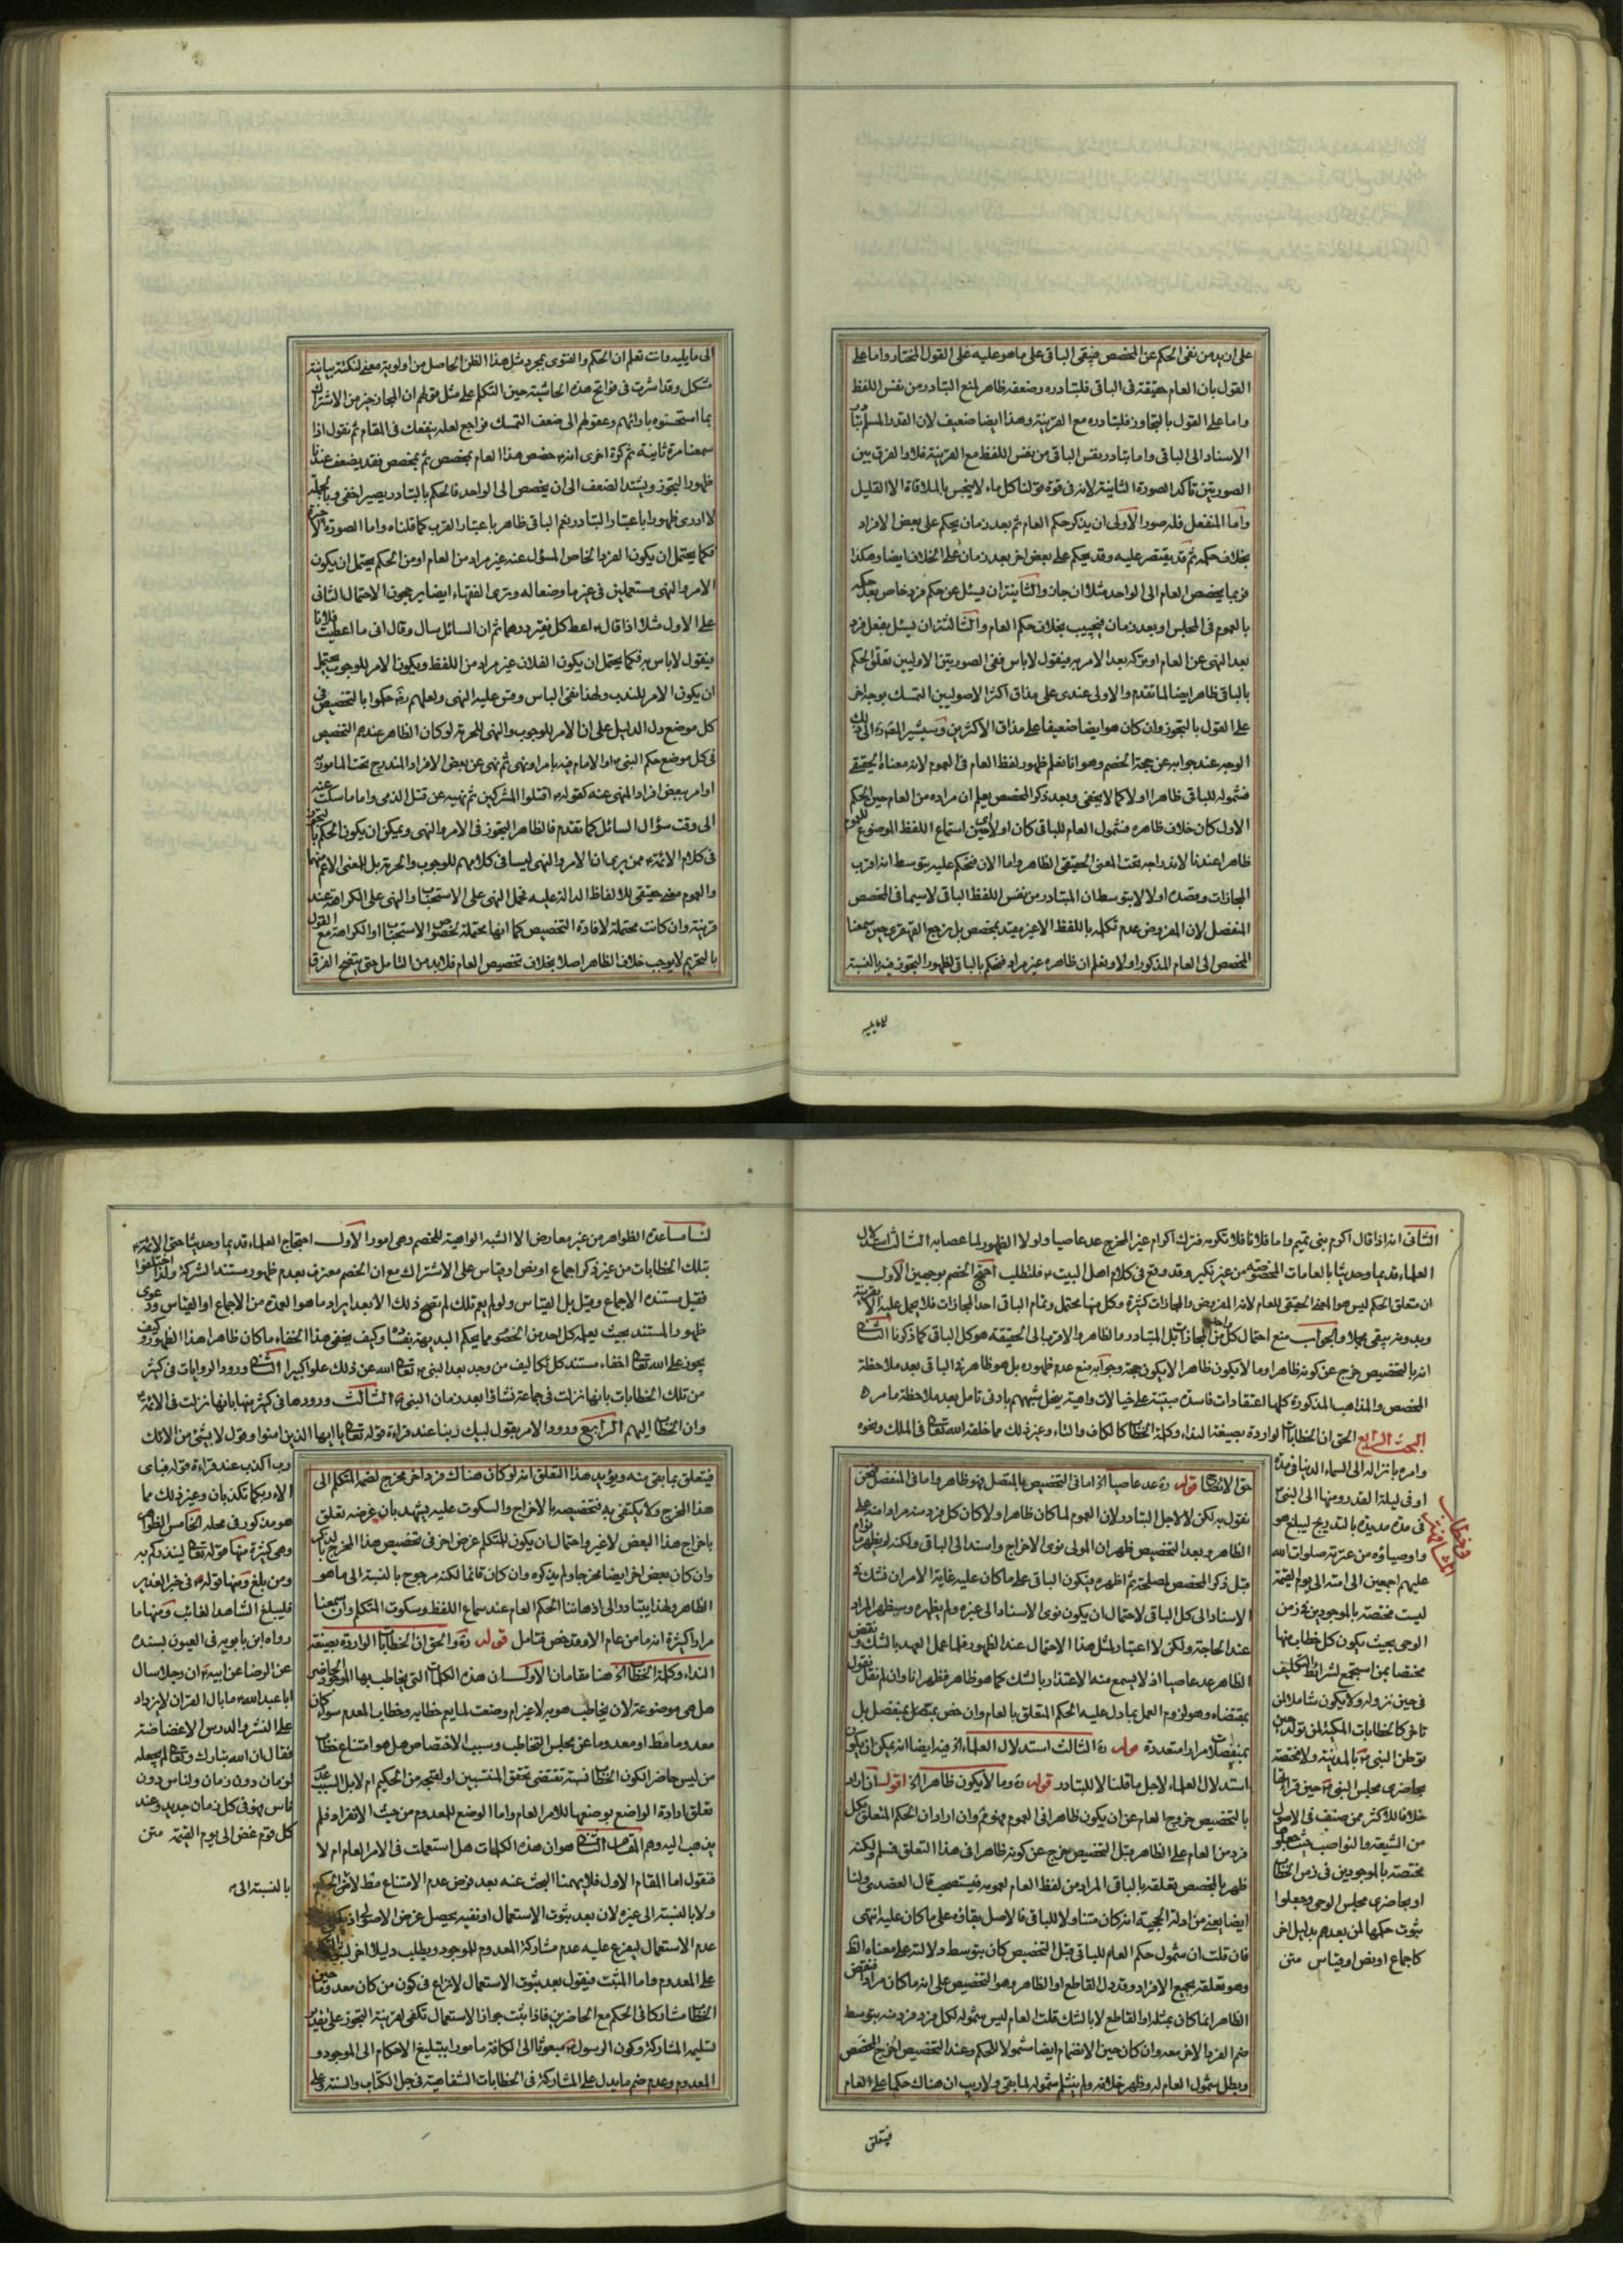 على انه لا بد من نفى الحكم عن المخصص فيبقى الباقى على ما هو عليه على القول المختار واما على
القول بان العام حقيقة فى الباقى فلتبادره وضعفه ظاهر لمنع التبادر من نفس اللفظ
واما على القول بالتجاوز فلتبادره مع القرينة وهذا ايضا ضعيف لان القدر المسلم تبادر
الاسناد الى الباقى واما تبادر نفس الباقى من نفس اللفظ مع القرينة فلا والفرق بين
الصورتين تأكد الصورة الثانية لانه فى قوة قولنا كل ماء لا ينجس بالملاقاة الا القليل
واما المنفصل فله صور الاولى ان يذكر حكم العام ثم بعد زمان يحكم على بعض الافراد
بخلاف حكمه ثم قد يقتصر عليه وقد يحكم على بعض اخر بعد زمان على الخلاف ايضا وهكذا
فربما يخصص العام الى الواحد مثلا ان جاز والثانية ان يسئل عن حكم فرد خاص بعد حكمه
بالعموم فى المجلس او بعد زمان فيجيب بخلاف حكم العام والثالثة ان يسئل بفعل فرد
بعد النهى عن العام او بتركه بعد الامر به فيقول لا باس ففى الصورتين الاوليين تعلق الحكم
بالباقى ظاهر ايضا لما تقدم والاولى عندى على مذاق اكثر الاصوليين التمسك بوجه اخر
على القول بالتجوز وان كان هو ايضا ضعيفا على مذاق الاكثرين وسيشير المصره الى ذلك
الوجه عند جوابه عن حجة الخصم وهو انا نعلم ظهور لفظ العام فى العموم لانه معناه الحقيقى
فشموله للباقى ظاهرا اولا كما لا يخفى وبعد ذكر المخصص يعلم ان مراده من العام حين الحكم
الاول كان خلاف ظاهره فشمول العام للباقى كان اولا حين استماع اللفظ الموضوع للعموم
ظاهرا عندنا لاندراجه تحت المعنى الحقيقى الظاهر واما الان فنحكم عليه بتوسط انه اقرب
المجازات وقصده اولا لا بتوسط ان المتبادر من نفس اللفظ الباقى لا سيما فى المخصص
المنفصل لان المفروض عدم تكلمه باللفظ الاخير مقيد بمخصص بل نرجع القهقرى حين سمعنا
المخصص الى العام المذكور اولا ونعلم ان ظاهره غير مراد فنحكم بالباقى لظهور التجوز فيه بالنسبة
الى ما يليه وانت تعلم ان الحكم والفتوى بمجرد مثل هذا الظن الحاصل من اولوية معنى لنكتة بيانية
مشكل وقد اشرت فى فواتح هذه الحاشية حين التكلم على مثل قولهم ان المجاز خير من الاشتراك
بما استحسنوه بارائهم وعقولهم الى ضعف التمسك فراجع لعله ينفعك فى المقام ثم نقول اذا
سمعنا مرة ثانية ثم كرة اخرى انه خصص هذا العام بمخصص ثم بمخصص فقد يضعف عندنا
ظهور التجوز ويشتد الضعف الى ان يخصص الى الواحد فالحكم بالتبادر يصير اخفى وبالجملة
لا ادرى ظهورا باعتبار التبادر نعم الباقى ظاهر باعتبار القرب كما قلناه واما الصورة الاخيرة
فكما يحتمل ان يكون الفرد الخاص المسؤل عنه غير مراد من العام او من الحكم يحتمل ان يكون
الامر والنهى مستعملين فى غير ما وضعا له وترى الفقهاء ايضا يرجحون الاحتمال الثانى
على الاول مثلا اذا قال اعط كل فقير درهما ثم ان السائل سال وقال انى ما اعطيت فلانا
فيقول لا باس به فكما يحتمل ان يكون الفلان غير مراد من اللفظ ويكون الامر للوجوب يحتمل
ان يكون الامر للندب ولهذا نفى الباس وقس عليه النهى ولعلهم ره حكموا بالتخصيص فى
كل موضع دل الدليل على ان الامر للوجوب والنهى للحرمة او كان الظاهر عندهم التخصيص
فى كل موضع حكم النبى او الامام فيه بامر او نهى ثم نهى عن بعض الافراد المندرج تحت المامور به
او امر ببعض افراد المنهى عنه كقوله اقتلوا المشركين ثم نهيه عن قتل الذمى واما ما سكت عنه
الى وقت سؤال السائل كما تقدم فالظاهر التجوز فى الامر والنهى ويمكن ان يكون الحكم بالتجوز
فى كلام الائمة ممن يرى ان الامر والنهى ليسا فى كلامهم للوجوب والحرمة بل للمعنى الاعم منهما
والعموم معنى حقيقى للالفاظ الدالة عليه فحمل النهى على الاستحباب والنهى على الكراهة عند
قرينة وان كانت محتملة لافادة التخصيص كما انها محتملة لخصوص الاستحباب او الكراهة مع القول
بالتحريم لا يوجب خلاف الظاهر اصلا بخلاف تخصيص العام فلا بد من التامل حتى يتضح الفرق
الثانى انه اذا قال اكرم بنى تميم واما فلانا فلا تكرمه فترك اكرام غير المخرج عد عاصيا ولولا الظهور لما عصى به الثالث استدلال
العلماء قديما وحديثا بالعامات المخصوصة من غير نكير وقد وقع فى كلام اهل البيت فلنطلب احتج الخصم بوجهين الاول
ان متعلق الحكم ليس هو المعنى الحقيقى للعام لانه المفروض والمجازات كثيرة وكل منها محتمل وتمام الباقى احد المجازات فلا يحمل عليه الا بقرينة
وبدونه يبقى مجملا والجواب منع احتمال كل من المجازات بل المتبادر ما الظاهر والاقرب الى الحقيقة هو كل الباقى كما ذكرنا الثانى
انه بالتخصيص خرج عن كونه ظاهرا وما لا يكون ظاهرا لا يكون حجة وجوابه منع عدم ظهوره بل هو ظاهر فى الباقى بعد ملاحظة
المخصص والمذاهب المذكورة كلها اعتقادات فاسدة مبتنية على خيالات واهية يضمحل شبههم بادنى تامل بعد ملاحظة ما مر
البحث الرابع الحق ان الخطابات الواردة بصيغة النداء وكلمة الخطاب كالكاف والتاء وغير ذلك مما خلقه الله تعالى فى الملك ونحوه
وامره بانزاله الى السماء الدنيا فى مدة
او فى ليلة القدر ومنها الى النبى
فى مدة مديدة بالتدريج ليبلغ هو
واوصياؤه من عترته صلوات الله
عليهم اجمعين الى امته الى يوم القيمة
ليست مختصة بالموجودين فى زمن
الوحى بحيث يكون كل خطاب منها
مختصا بمن استجمع لشرائط التكليف
فى حين نزوله ولا يكون شاملا لمن
تاخر كالخطابات المكية لمن تولد حين
توطن النبى بالمدينة ولا مختصة
بحاضرى مجلس النبى حين قرائتها
خلافا للاكثر ممن صنف فى الاصول
من الشيعة والنواصب حيث جعلوها
مختصة بالموجودين فى زمن الخطاب
او بحاضرى مجلس الوحى وجعلوا
ثبوت حكمها لمن بعدهم بدليل اخر
كاجماع او نص او قياس متن
حق الايضاح قوله ره عد عاصيا الخ اما فى التخصيص بالمتصل فهو ظاهر واما فى المنفصل فنحن
نقول به لكن لا لاجل التبادر ولان العموم لما كان ظاهرا ولا كان كل فرد منه مرادا منه على
الظاهر وبعد التخصيص ظهر ان المولى نوى الاخراج واسند الى الباقى ولكنه لم يظهر ما نواه
قبل ذكر المخصص لمصلحة ثم اظهره فيكون الباقى على ما كان عليه غاية الامر ان نشك فى
الاسناد الى كل الباقى لاحتمال ان يكون نوى الاسناد الى غيره ولم يظهره وسيظهر المراد
عند الحاجة ولكن لا اعتبار لمثل هذا الاحتمال عند الظهور فلما عمل العبد بالشك ونقض
الظاهر عد عاصيا اذ لا يسمع منه الاعتذار بالشك كما هو ظاهر فظهر انا وان لم نقل نقول
بمقتضاه وهو لزوم العمل بما دل عليه الحكم المتعلق بالعام وان خص بمتصل بمنفصل بل
بمنفصلات مرارا متعددة قوله ره الثالث استدلال العلماء الخ فيه ايضا انه يمكن ان يكون
استدلال العلماء لاجل ما قلنا لا للتبادر قوله ره وما لا يكون ظاهرا الخ اقول ان اراد
بالتخصيص خروج العام عن ان يكون ظاهرا فى العموم فهو ثم وان اراد ان الحكم المتعلق بكل
فرد من العام على الظاهر قبل التخصيص خرج عن كونه ظاهرا فى هذا التعلق فسلم ولكنه
ظهر بالمخصص تعلقه بالباقى المراد من لفظ العام لعمومه فيستصحب قال العضدى ولنا
ايضا يعنى من ادلة الحجية انه كان متناولا للباقى فالاصل بقاؤه على ما كان عليه انتهى
فان قلت ان شمول حكم العام للباقى قبل التخصيص كان بتوسط دلالته على معناه الظ
وهو تعلقه بجميع الافراد وقد دل القاطع او الظاهر وهو التخصيص على انه ما كان مرادا فنقض
الظاهر انما كان بمثله او القاطع لا بالشك قلت العام ليس شموله لكل فرد فرد منه بتوسط
ضم الفرد الاخر معه وان كان حين الانضمام ايضا شمولا للحكم وعند التخصيص اخرج المخصص
وبطل شمول العام له وظهر خلافه ولم ينثلم شموله لما بقى ولا ريب ان هناك حكما على العام
فيتعلق
لنا مساعدة الظواهر من غير معارض الا الشبه الواهية للخصم وهى امور الاول احتجاج العلماء قديما وحديثا حتى الائمة
بتلك الخطابات من غير ذكر اجماع او نص او قياس على الاشتراك مع ان الخصم معترف بعدم ظهور مستند الشركة ولذا اختلفوا
فقيل مستنده الاجماع وقيل بل القياس ولو لم يعم تلك لم تصح ذلك الا بعد ايراد ما هو العمدة من الاجماع او القياس ودعوى
ظهور المستند بحيث يعلمه كل احد من الخصوم مما يحكم البديهة بفساده وكيف يخفى هذا الخفاء ما كان ظاهرا هذا الظهور وكيف
يجوز على الله تعالى اخفاء مستند كل تكاليف من وجد بعد النبى تعالى الله عن ذلك علوا كبيرا الثانى ورود الروايات فى كثير
من تلك الخطابات بانها نزلت فى جماعة نشاؤا بعد زمان النبى الثالث ورودها فى كثير منها بانها نزلت فى الائمة
وان الخطاب اليهم الرابع ورود الامر بقول لبيك ربنا عند قراءة قوله تعالى يا ايها الذين امنوا وقول لا بشئ من الائك
رب اكذب عند قراءة قوله فباى
الاء ربكما تكذبان وغير ذلك مما
هو مذكور فى محله الخامس الظواهر
وهى كثيرة منها قوله تعالى لينذركم به
ومن بلغ ومنها قوله فى خبر الغدير
فليبلغ الشاهد الغائب ومنها ما
رواه ابن بابويه فى العيون بسنده
عن الرضا عن ابيه ان رجلا سال
ابا عبد الله ما بال القران لا يزداد
على النشر والدرس الا غضاضة
فقال ان الله تبارك وتعالى لم يجعله
لزمان دون زمان ولناس دون
ناس فهو فى كل زمان جديد وعند
كل قوم غض الى يوم القيمة متن
بالنسبة الى
فيتعلق بما بقى منه ويؤيد هذا التعلق انه لو كان هناك فرد اخر مخرج لضمه المتكلم الى
هذا المخرج ولا يكتفى به فتخصيصه بالاخراج والسكوت عليه يشهد بان غرضه تعلق
باخراج هذا البعض لا غير واحتمال ان يكون للمتكلم غرض اخر فى تخصيص هذا المخرج بالذكر
وان كان بعض اخر ايضا مخرجا ولم يذكره وان كان قائما لكنه مرجوح بالنسبة الى ما هو
الظاهر ولهذا يتبادر الى اذهاننا الحكم العام عند سماع اللفظ وسكوت المتكلم وان سمعنا
مرارا كثيرة انه ما من عام الا وقد خص فتامل قوله ره والحق ان الخطابات الواردة بصيغة
النداء وكلمة الخطاب الخ هنا مقامان الاول ان هذه الكلمات التى يخاطب بها الموجود الحاضر
هل هى موضوعة لان يخاطب هو به لا غير ام وضعت لما يعم خطابه وخطاب المعدم سواء كان
معدوما فقط او معدوما عن مجلس التخاطب وسبب الاختصاص هل هو امتناع خطاب
من ليس حاضرا لكون الخطاب نسبة تقتضى تحقق المنتسبين او لقبحه من الحكيم ام لا بل السبب عدم
تعلق ارادة الواضع بوضعها للامر العام واما الوضع للمعدوم من حيث الانفراد فلم
يذهب اليه وهم المقام الثانى هو ان هذه الكلمات هل استعملت فى الامر العام ام لا
فنقول اما المقام الاول فلا يهمنا البحث عنه بعد فرض عدم الامتناع عقلا
ولا بالنسبة الى غيره لان بعد ثبوت الاستعمال او نفيه يحصل غرض الاصولى اذ
عدم الاستعمال ليفرع عليه عدم مشاركة المعدوم للموجود ويطلب دليلا اخر
على المعدوم واما المثبت فيقول بعد ثبوت الاستعمال لا نزاع فى كون من كان معدوما حين
الخطاب مشاركا فى الحكم مع الحاضرين فاذا ثبت جواز الاستعمال تكفى لقرينة التجوز على تقدير
تسليمه المشاركة وكون الرسول مبعوثا الى الكافة مامورا بتبليغ الاحكام الى الموجود و
المعدوم وعدم ضم ما يدل على المشاركة فى الخطابات الشفاهية فى جل الكتاب والسنة وعلى